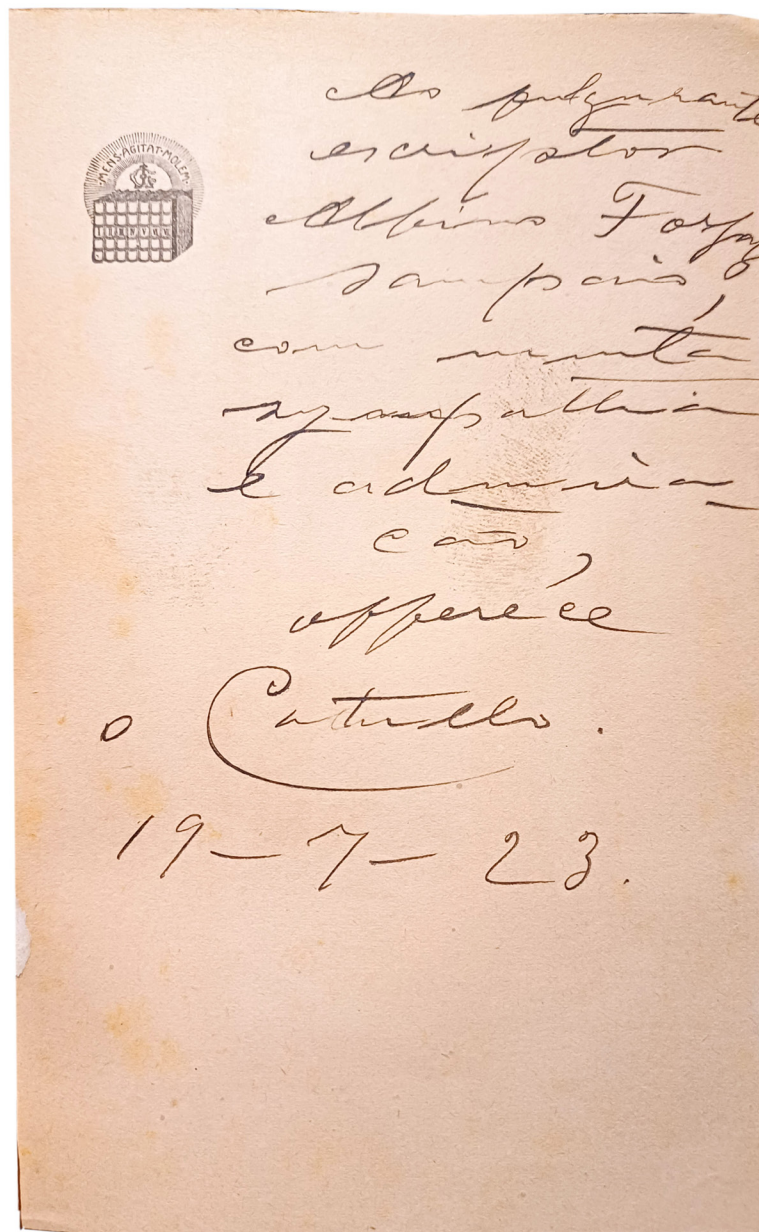 MENS·AGITAT·MOLEM
Ao fulgurante
escriptor
Albino Forjaz
Sampaio,
com muita
sympathia
e admira-
ção,
offerece
o Catullo.
19-7-23.